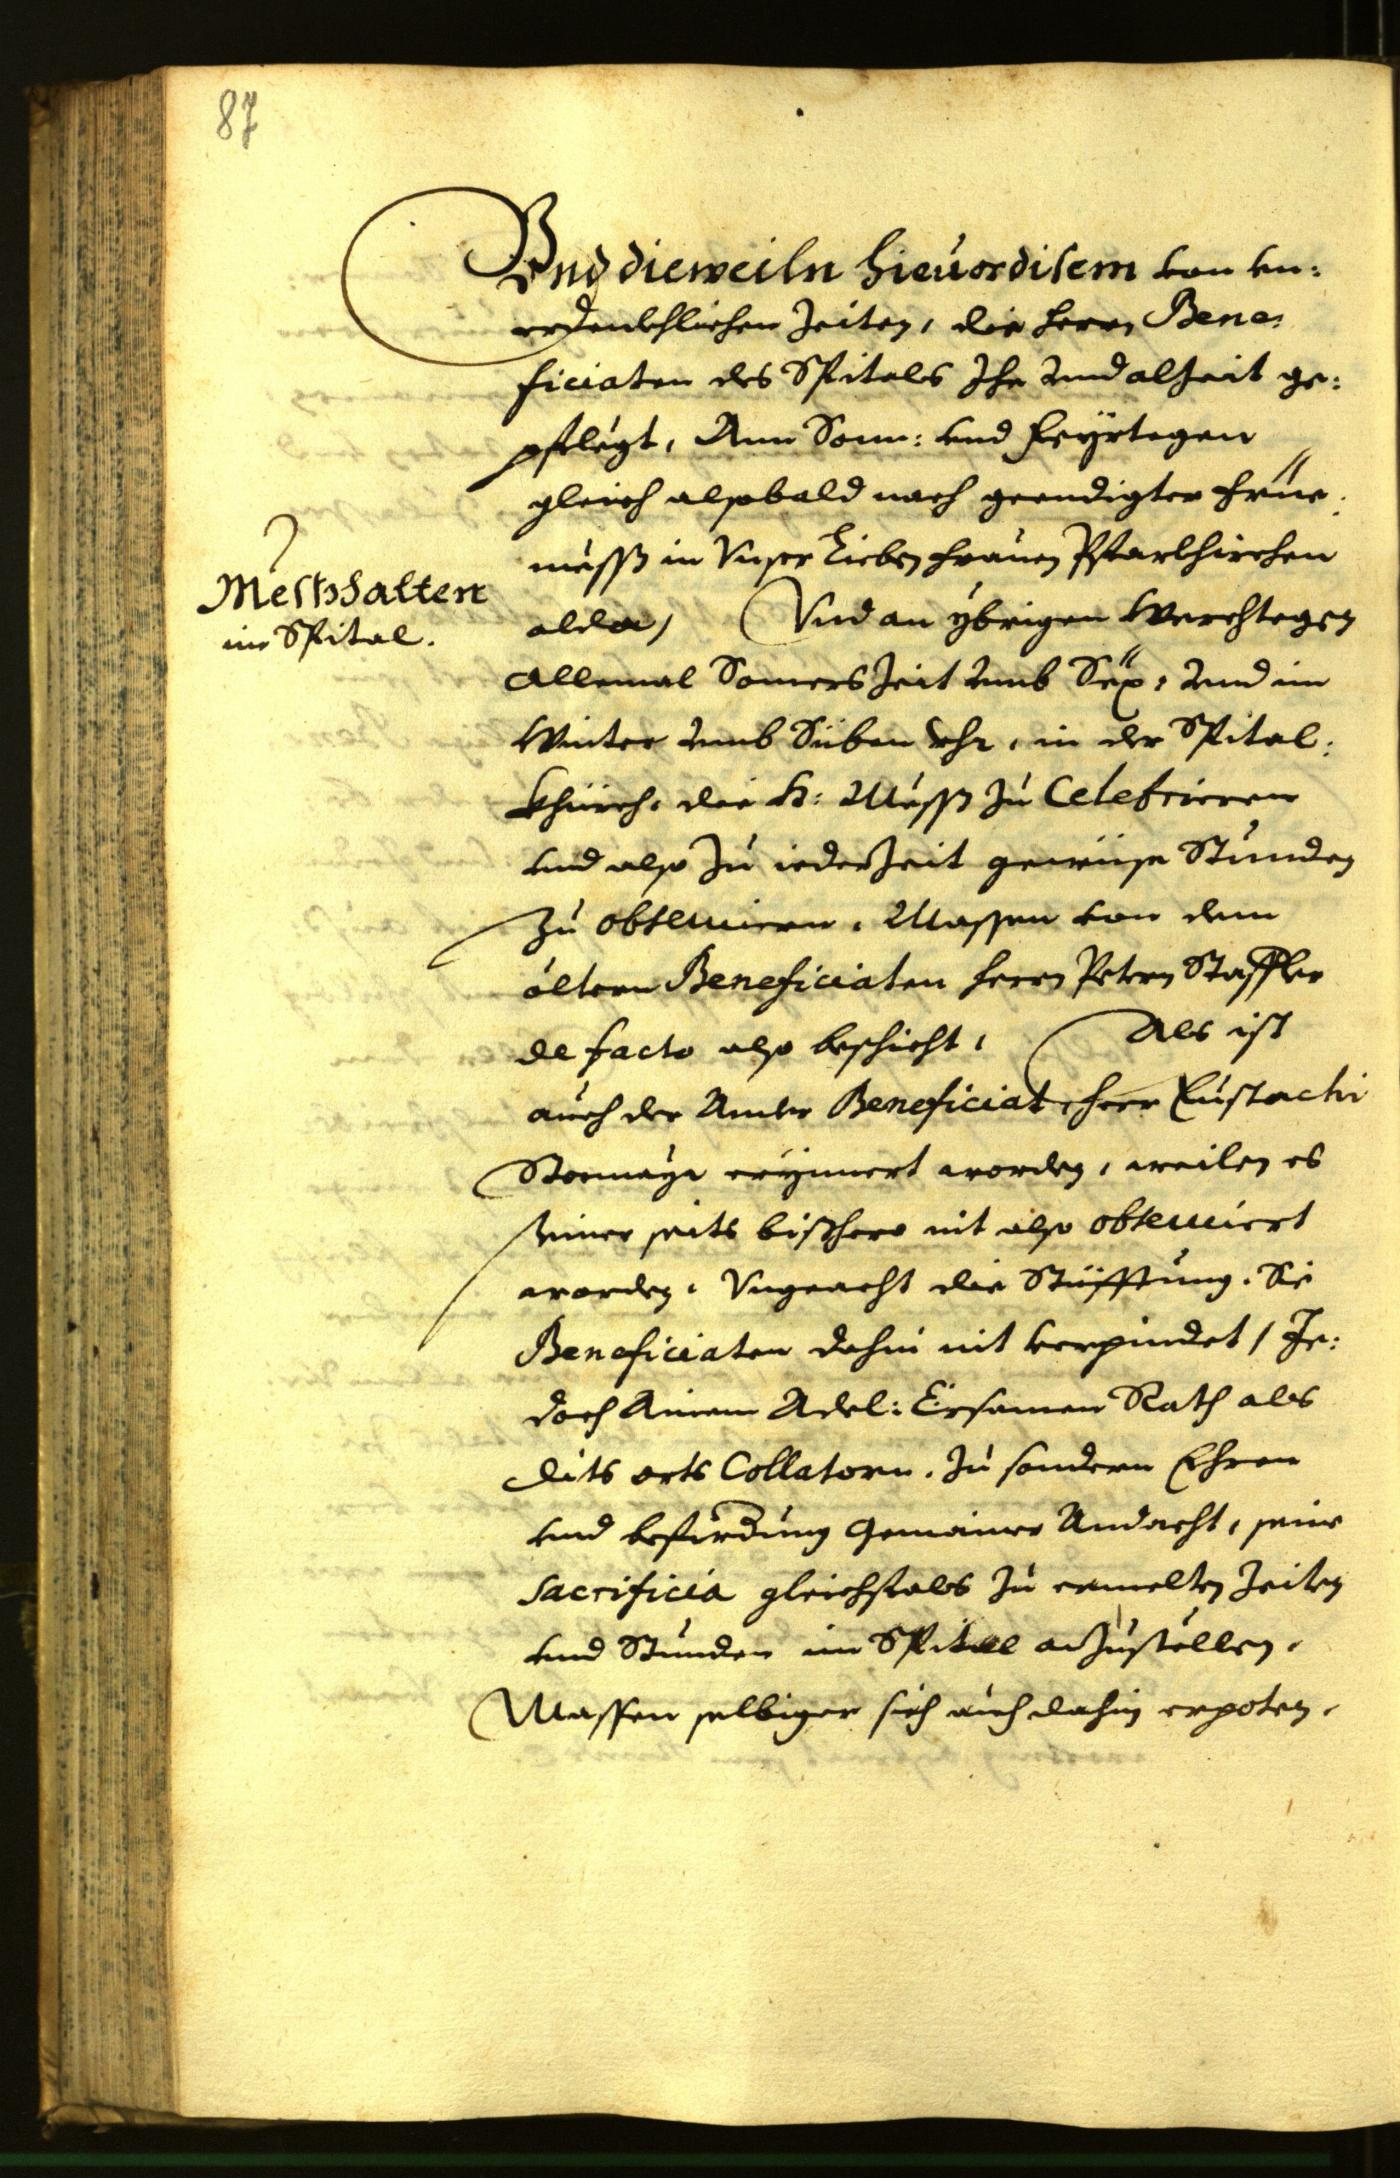 87
Und dieweiln hieuordisem von vn:
verdenckhlichen Zeiten, die herrn Bene:
ficiaten des Spitals Ihe vnd alzeit ge:
pflegt, Ann Sonn: vnd Feÿrtagen
gleich alsobald nach geendigter früe:
mëss in Vnser Lieben frauen Pfarkhirchen
alda, Vnd an ÿbrigen Werchtagen
allemal Somers Zeit vmb Sëx, vnd im
Winter vmb Siben Vhr, in der Spital:
khürch, die H: Mëss zu Celebrieren
vnd also zu iederzeit gewüse Stunden
zu obseruiern, Massen von dem
öltern Beneficiaten herrn Petern Staffler
de facto also beschicht, Als ist
auch der Ander Beneficiat, herr Eustachi
Stormaÿr erÿnnert worden, weilen es
seiner seits bisshero nit also obseruiert
worden, Vngeacht die Stüfftung, Sie
Beneficiaten dahin nit verpindet, Je:
doch Ainem Adel: Ersamen Rath als
dits orts Collatorn, zu sondern Ehren
vnd befürdung gemainer Andacht, seine
sacrificia gleichsfals zu ermelten Zeiten
vnd Stunden im Spital anzustellen,
Massen selbiger sich auch dahin erpoten,
Messhalten
im Spital.